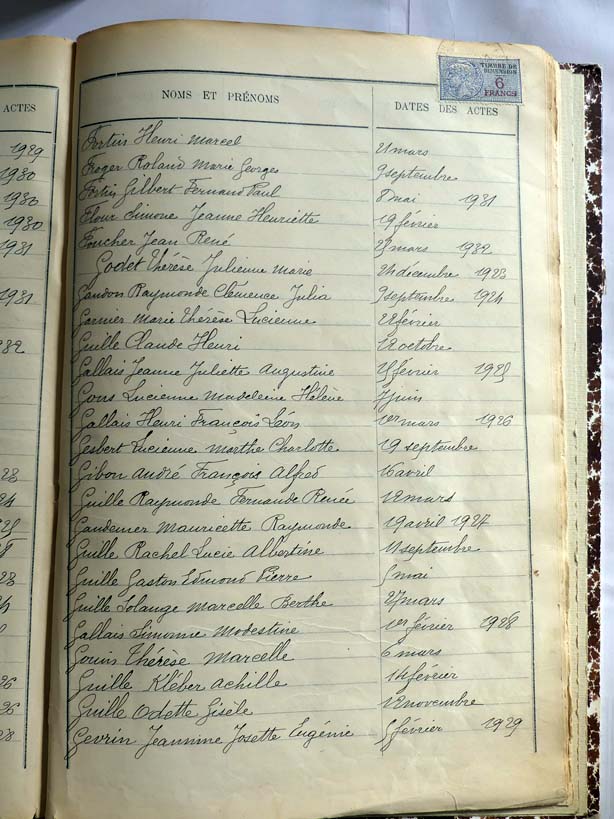 ACTES
TIMBRE DE
DIMENSION
6
FRANCS
NOMS ET PRÉNOMS DATES DES ACTES
1929
1930
1930
1930
1931
1931
Fortin Henri Marcel 21 mars
Froger Roland Marie Georges 9 septembre
Fortin Gilbert Fernand Paul 8 mai 1931
Flour Simone Jeanne Henriette 19 février
Foucher Jean René mars 1932
Godet Thérèse Julienne Marie 24 décembre 1923
Gandon Raymonde Clémence Julia 9 septembre 1924
Garnier Marie Thérèse Lucienne 22 février
Guille Claude Henri 12 octobre
Gallais Jeanne Juliette Augustine février 1925
Gous Lucienne Madeleine Hélène 7 juin
Gallais Henri François Léon 1er mars 1926
Gesbert Lucienne Marthe Charlotte 19 septembre
Gibon André François Alfred 16 avril
Guille Raymonde Fernande Renée 12 mars
Gandemer Mauricette Raymonde 19 avril 1927
Guille Rachel Lucie Albertine 11 septembre
Guille Gaston Edmond Pierre 5 mai
Guille Solange Marcelle Berthe 27 mars
Gallais Simonne Modestine 1er février 1928
Gouin Thérèse Marcelle 6 mars
Guille Kléber Achille 14 février
Guille Odette Gisèle 12 novembre
Gevrin Jeannine Josette Eugénie 5 février 1929